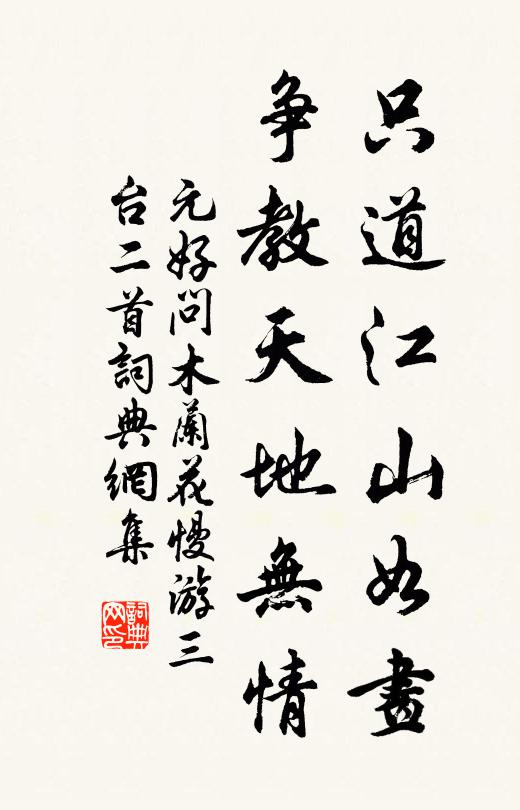 只道江山如畫
争教天地無情
元好問木蘭花慢游三
台二首詞典網集
詞典
网印